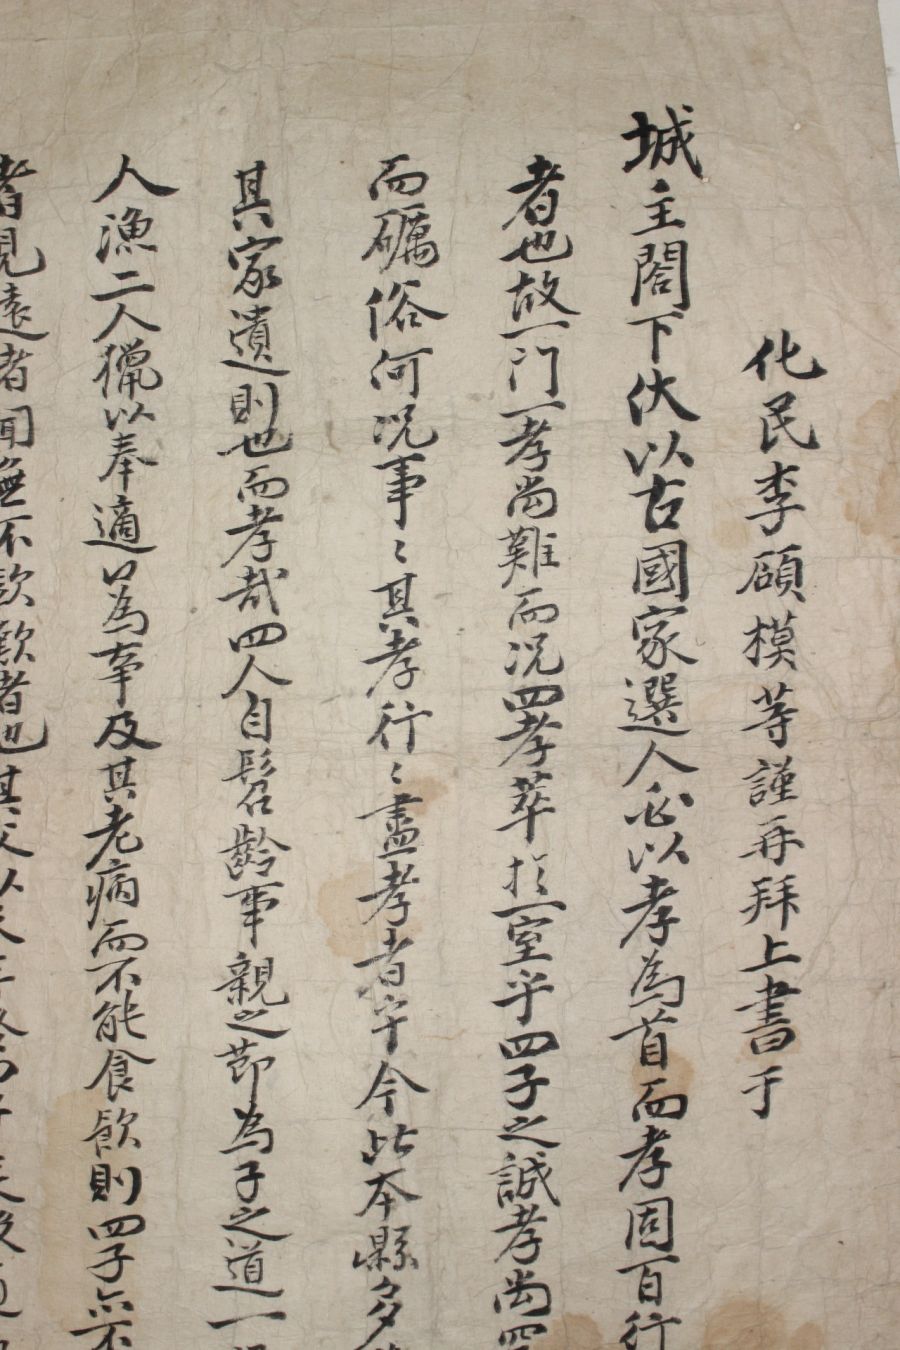 化民李碩模等謹再拜上書于
城主閤下伏以古國家選人必以孝為首而孝固百行
者也故一門一孝尚難而況四孝萃於一室乎四子之誠孝尚
而礪俗何況事〻其孝行〻盡孝者乎今此本縣多
其家遺則也而孝哉四人自髫齡事親之節為子之道一
人漁二人獵以奉適口為事及其老病而不能食飮則四子亦不
者見遠者聞無不欽歎者也其父以天年終